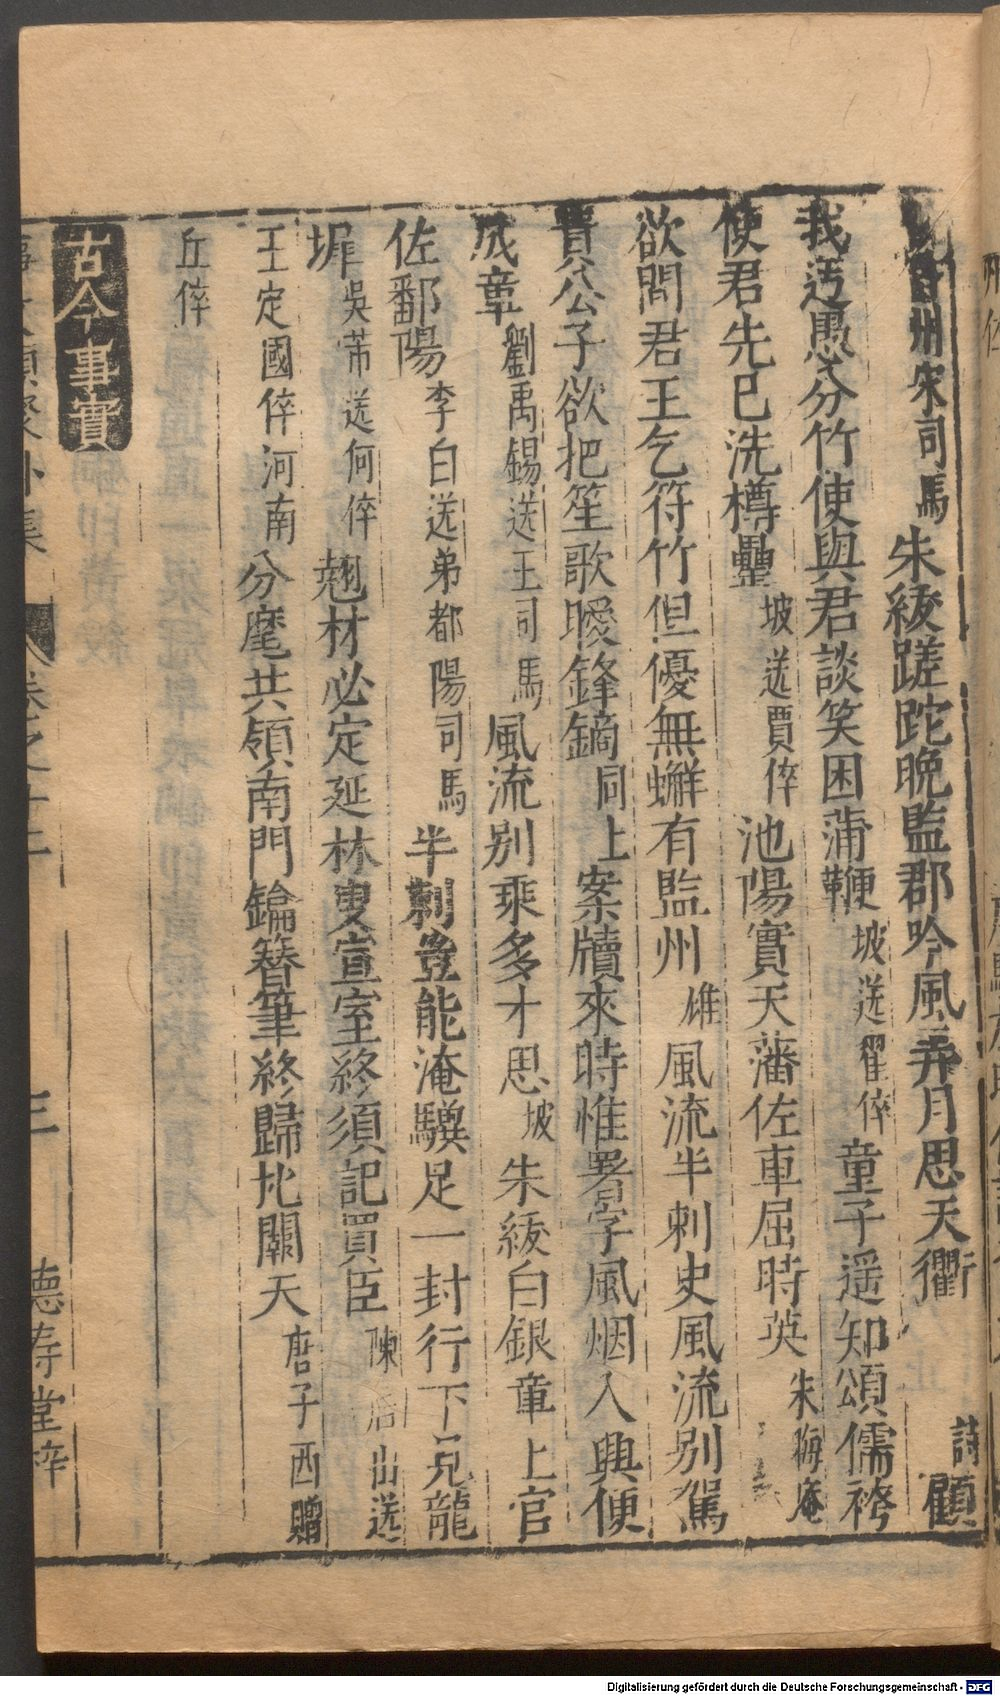 州宋司馬朱紱蹉跎晚監郡吟風弄月思天衢詩顧
我迂愚分竹使與君談笑困蒲鞭坡送翟倅童子遥知頌儒袴
使君先已洗樽罍坡送賈倅池陽實天藩佐車屈時英朱晦庵
欲問君王乞符竹但優無蠏有監州雄風流半刺史風流别駕
貴公子欲把笙歌曖鋒鏑同上案牘來時惟署字風烟入興便
成章劉禹錫送王司馬風流别乘多才思坡朱紱白銀章上官
佐鄱陽李白送弟都陽司馬半刺豈能淹驥足一封行下晃龍
墀吳芾送何倅翹材必定延林叟宣室終須記買臣陳后山送
王定國倅河南分麾共領南門鑰簪筆終歸北闕天唐子西贈
丘倅
古今事實
事文類聚外集 卷之十二 三 德寿堂梓
Digitalisierung gefördert durch die Deutsche Forschungsgemeinschaft - DFG